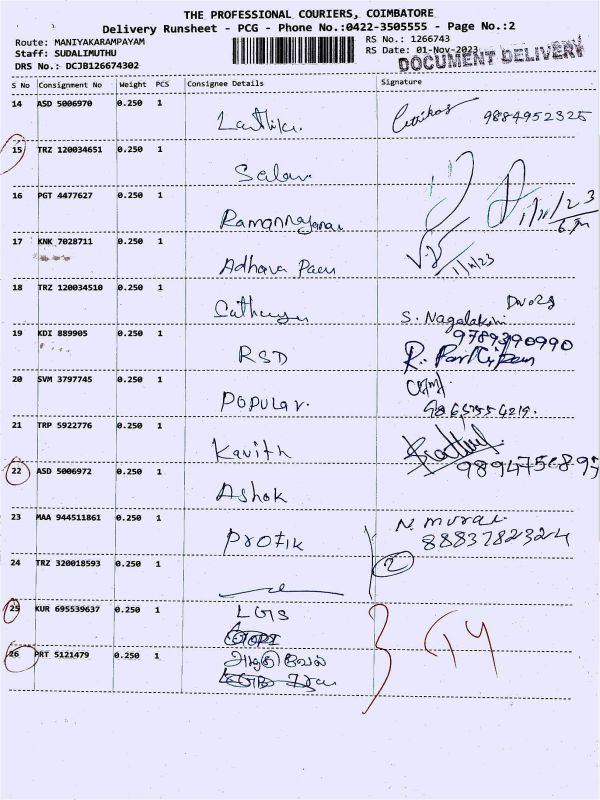 THE PROFESSIONAL COURIERS, COIMBATORE
Delivery Runsheet - PCG - Phone No.:0422-3505555 - Page No.:2
Route: MANIYAKARAMPAYAM RS No.: 1266743
Staff: SUDALIMUTHU RS Date: 01-Nov-2023
DRS No.: DCJB126674302 DOCUMENT DELIVERY
S No Consignment No Weight PCS Consignee Details Signature
14 ASD 5006970 0.250 1
Larthika 9884952325
15 TRZ 120034651 0.250 1
Salar
16 PGT 4477627 0.250 1
1/11/23
17 KNK 7028711 0.250 1
Adhava 1/11/23
18 TRZ 120034510 0.250 1
S. Nagalakshmi
19 KDI 889905 0.250 1 9789390990
RSD R. Parthipan
20 SVM 3797745 0.250 1
Popular.
21 TRP 5922776 0.250 1
Kavith
22 ASD 5006972 0.250 1
Ashok
23 MAA 944511861 0.250 1 N. Murali
Profik
24 TRZ 320018593 0.250 1 2
25 KUR 695539637 0.250 1
LGS
26 PRT 5121479 0.250 1